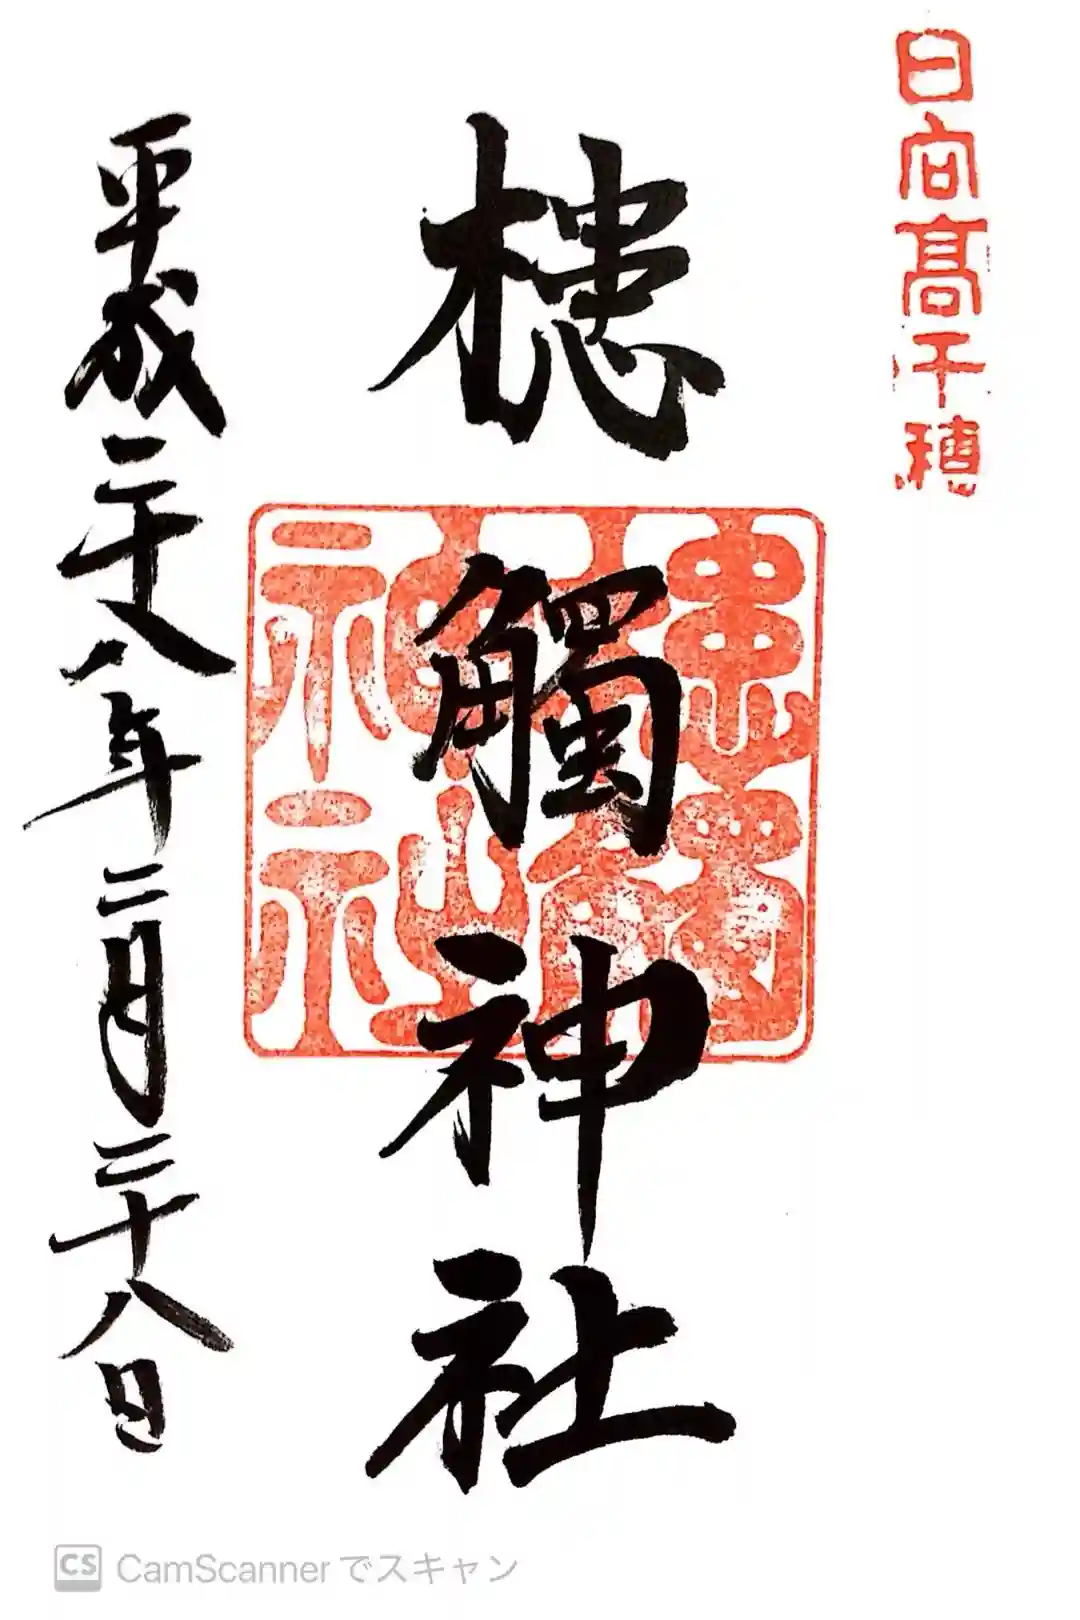 日向高千穂
槵觸神社
平成二十八年二月二十八日
CS CamScanner でスキャン